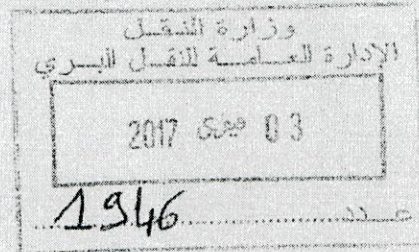 وزارة النقل
الإدارة العامة للنقل البري
03 فيفري 2017
عدد 1946